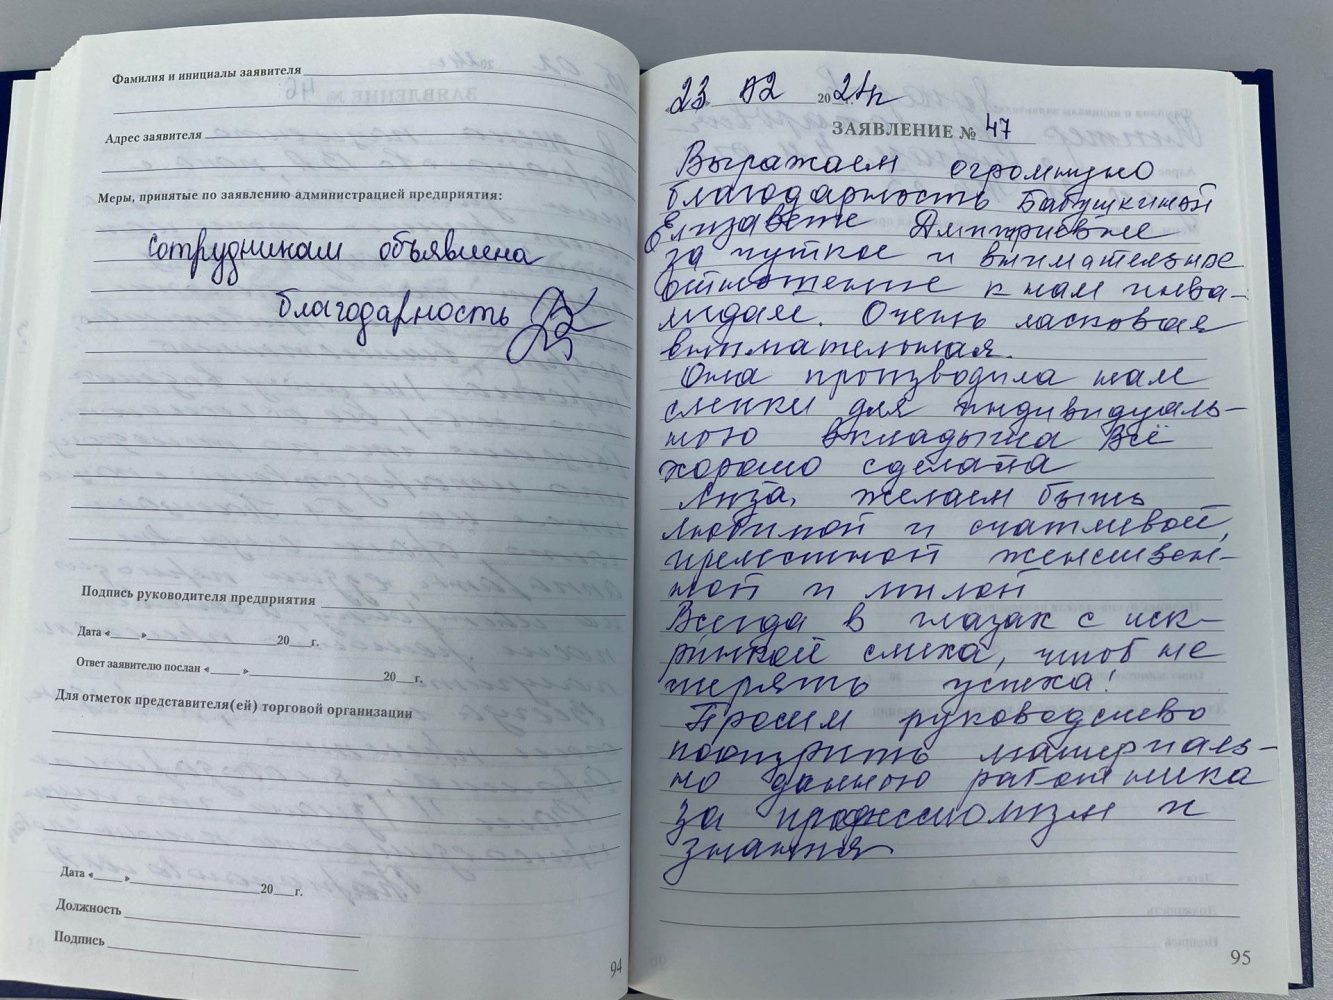 Фамилия и инициалы заявителя
Адрес заявителя
Меры, принятые по заявлению администрацией предприятия:
сотрудникам объявлена
благодарность
Подпись руководителя предприятия
Дата «____» 20__г.
Ответ заявителю послан «____» 20__г.
Для отметок представителя(ей) торговой организации
Дата «____» 20__г.
Должность
Подпись
94
23 02 2024г.
ЗАЯВЛЕНИЕ № 47
Выражаем огромную
благодарность Бабушкиной
Елизавете Дмитриевне
за чуткое и внимательное
отношение к нам инва-
лидам. Очень ласковая
внимательная.
Она производила нам
слепки для индивидуаль-
ного вкладыша Всё
хорошо сделала
Лиза, желаем быть
любимой и счастливой,
прелестной женствен-
ной и милой
Всегда в глазах с иск-
ринкой смеха, чтоб не
терять успеха!
Просим руководство
поощрить материаль-
но данного работника
за профессионализм и
знания
95